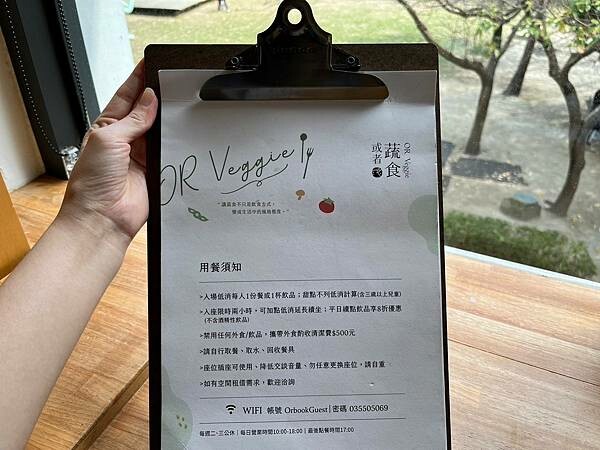 OR Veggie
OR Veggie
蔬食
或者
"讓蔬食不只是飲食方式，
變成生活中的風格態度。"
用餐須知
>入場低消每人1份餐或1杯飲品；甜點不列低消計算(含三歲以上兒童)
>入座限時兩小時，可加點低消延長續坐；平日續點飲品享8折優惠
(不含酒精性飲品)
>禁用任何外食/飲品，攜帶外食酌收清潔費$500元
>請自行取餐、取水、回收餐具
>座位插座可使用、降低交談音量、勿任意更換座位，請自重
>如有空間租借需求，歡迎洽詢
WIFI 帳號 OrbookGuest│密碼 035505069
每週二、三公休│每日營業時間10:00-18:00│最後點餐時間17:00